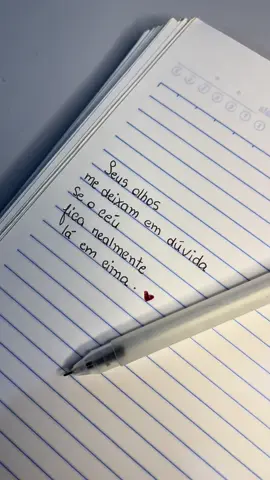 Seus olhos
me deixam em dúvida
Se o céu
fica realmente
lá em cima.